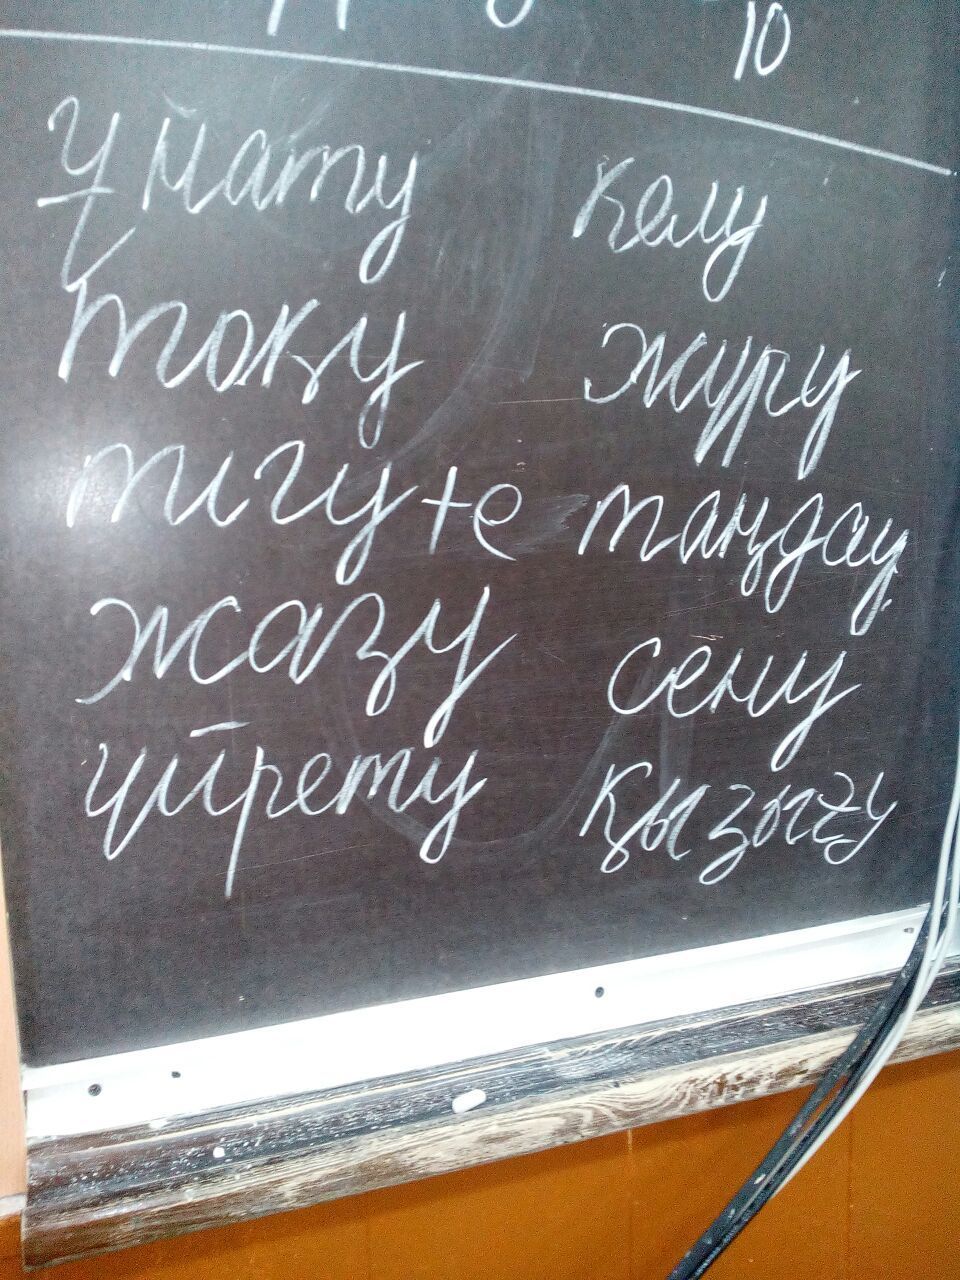 10
ұнату келу
тоқу жүру
тігу+е таңдау
жазу сену
үйрету қызығу